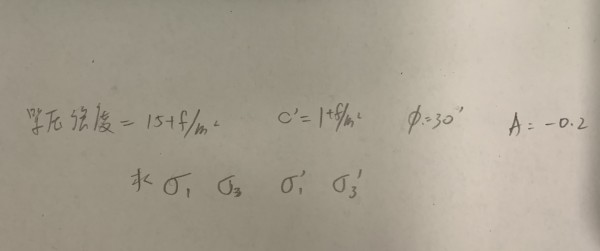 單压強度 = 15tf/m² C' = 1tf/m² φ = 30° A = -0.2
求 σ₁ σ₃ σ₁' σ₃'